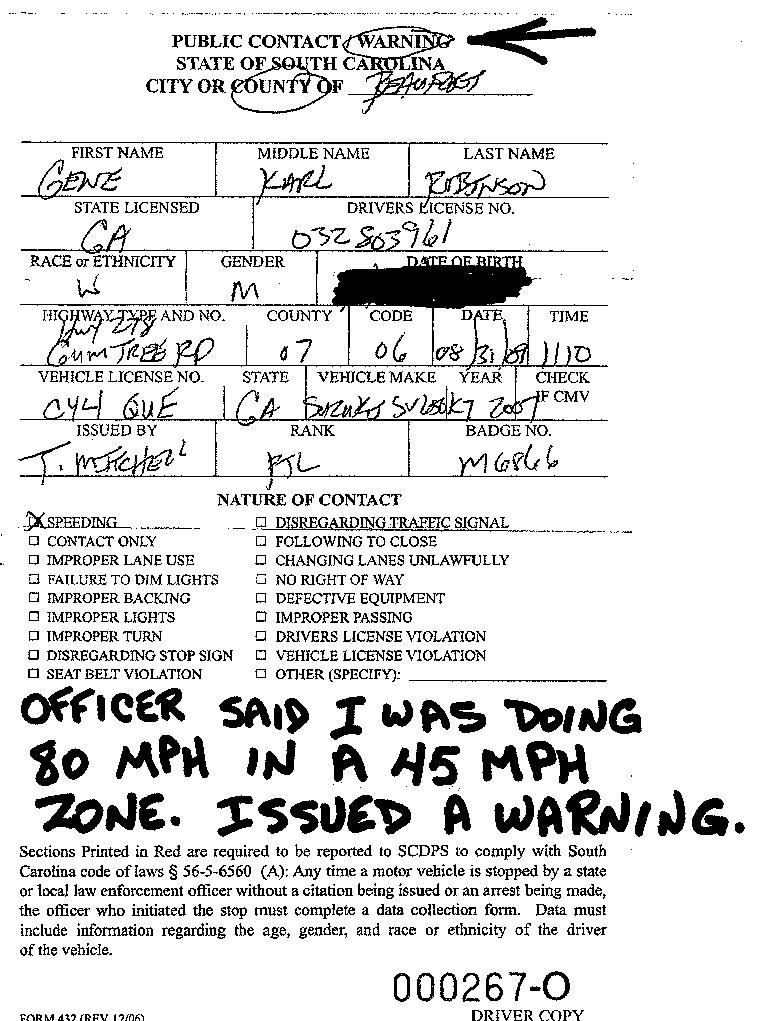 PUBLIC CONTACT / WARNING
STATE OF SOUTH CAROLINA
CITY OR COUNTY OF BEAUFORT
FIRST NAME MIDDLE NAME LAST NAME
GENE KARL ROBINSON
STATE LICENSED DRIVERS LICENSE NO.
GA 032803961
RACE or ETHNICITY GENDER DATE OF BIRTH
W M
HIGHWAY TYPE AND NO. COUNTY CODE DATE TIME
Hwy 278
GUMTREE RD 07 06 08/31/09 1110
VEHICLE LICENSE NO. STATE VEHICLE MAKE YEAR CHECK
IF CMV
CY41 QUE GA SUZUKI 2007
ISSUED BY RANK BADGE NO.
T. MITCHELL PTL M6866
NATURE OF CONTACT
SPEEDING ☐ DISREGARDING TRAFFIC SIGNAL
☐ CONTACT ONLY ☐ FOLLOWING TO CLOSE
☐ IMPROPER LANE USE ☐ CHANGING LANES UNLAWFULLY
☐ FAILURE TO DIM LIGHTS ☐ NO RIGHT OF WAY
☐ IMPROPER BACKING ☐ DEFECTIVE EQUIPMENT
☐ IMPROPER LIGHTS ☐ IMPROPER PASSING
☐ IMPROPER TURN ☐ DRIVERS LICENSE VIOLATION
☐ DISREGARDING STOP SIGN ☐ VEHICLE LICENSE VIOLATION
☐ SEAT BELT VIOLATION ☐ OTHER (SPECIFY):
OFFICER SAID I WAS DOING
80 MPH IN A 45 MPH
ZONE. ISSUED A WARNING.
Sections Printed in Red are required to be reported to SCDPS to comply with South
Carolina code of laws § 56-5-6560 (A): Any time a motor vehicle is stopped by a state
or local law enforcement officer without a citation being issued or an arrest being made,
the officer who initiated the stop must complete a data collection form. Data must
include information regarding the age, gender, and race or ethnicity of the driver
of the vehicle.
000267-O
FORM 432 (REV 12/06) DRIVER COPY